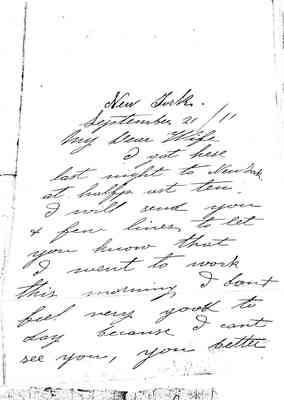 New York.
September 21/11
My Dear Wife
I got here
last night to New York
at halfp ast ten.
I will send you
a few lines, to let
you know that
I went to work
this morning, I dont
feel very good to
day because I cant
see you, you better